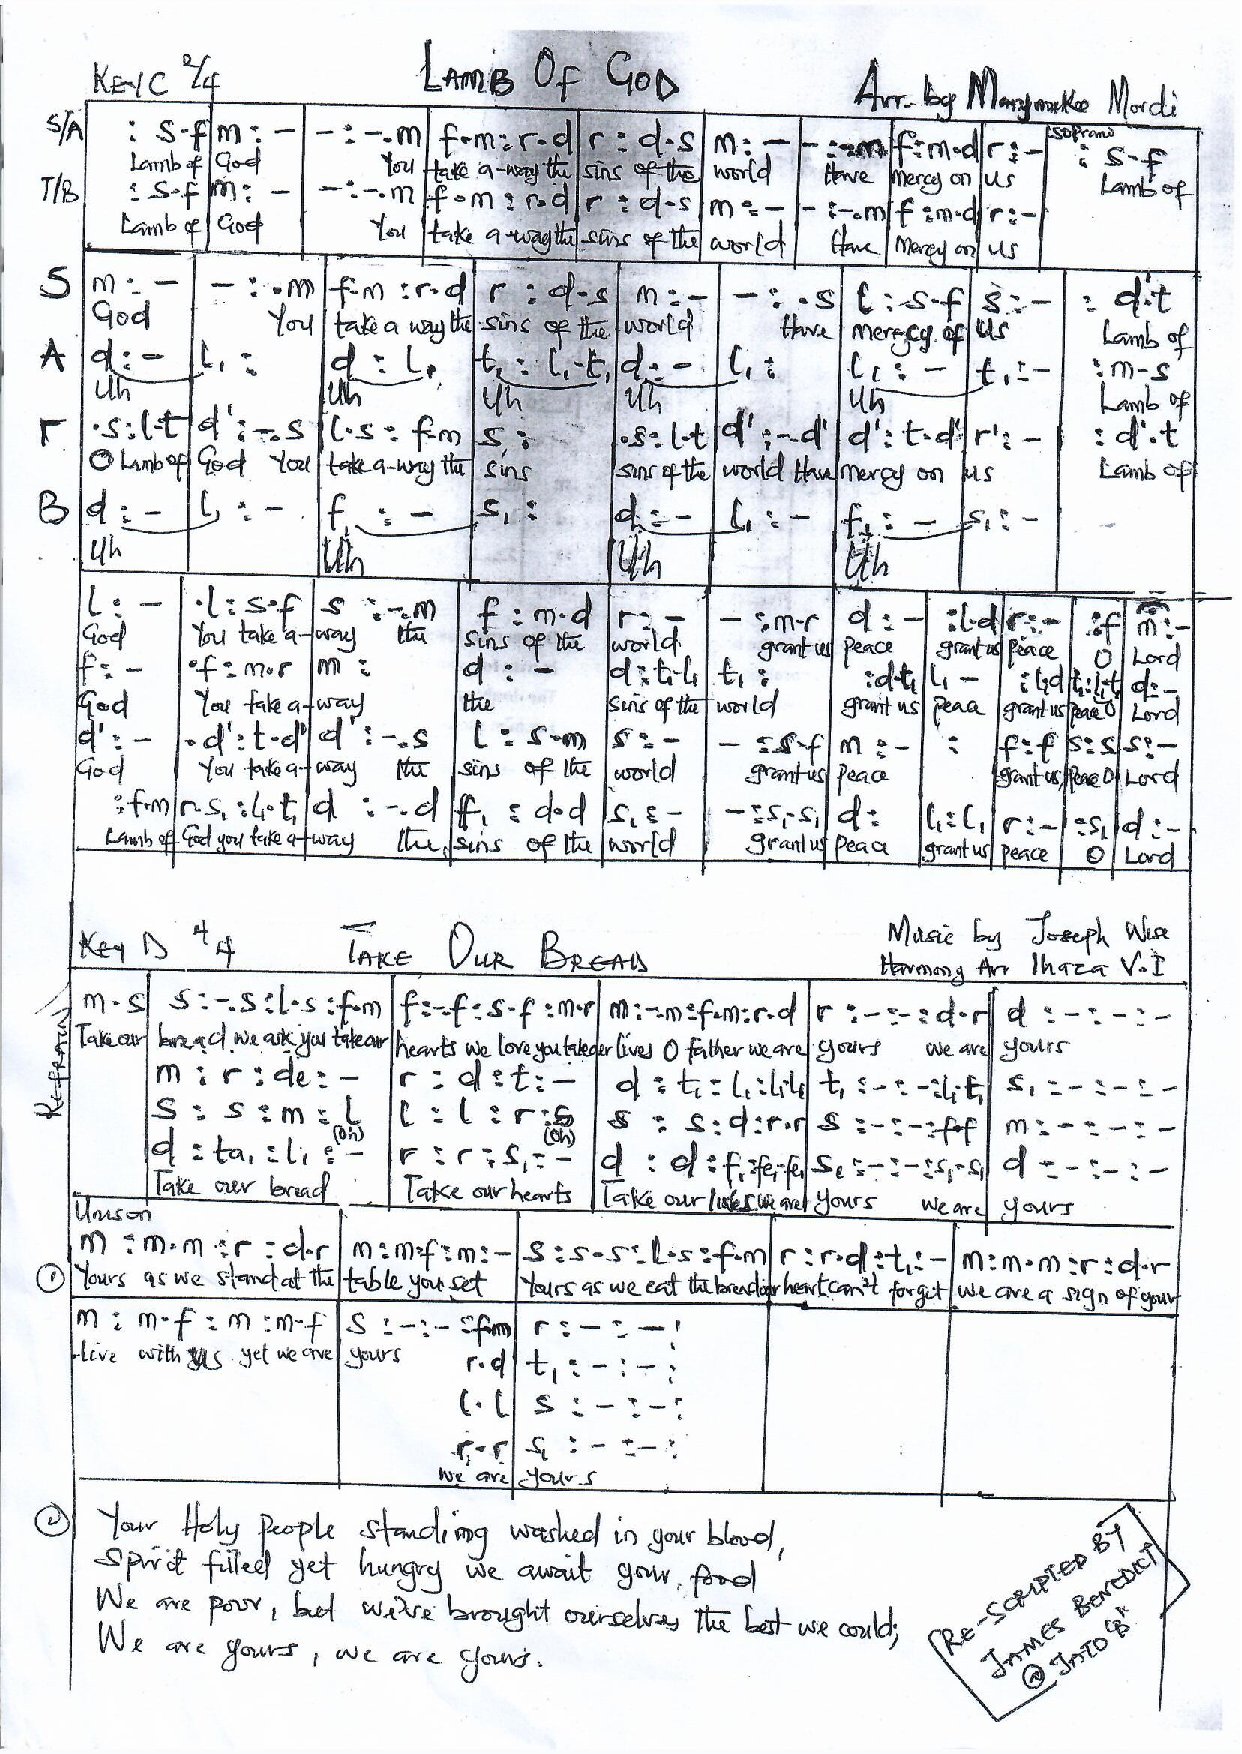 KEY C 2/4 LAMB OF GOD Arr. by Marymaka Mordi
S/A : s-f | m : - | - : -.m | f-m : r-d | r : d-s | m : - | - : -.m | f : m-d | r : - | Soprano : s-f
Lamb of God You take a-way the sins of the world Have Mercy on us Lamb of
T/B : s-f | m : - | - : -.m | f-m : r-d | r : d-s | m : - | - : -.m | f : m-d | r : -
Lamb of God You take a-way the sins of the world Have Mercy on us
S m : - | - : .m | f-m : r-d | r : d-s | m : - | - : .s | l : s-f | s : - | : d'-t
God You take a way the sins of the world Have mercy of us Lamb of
A d : - | l₁ : | d : l₁ | t₁ : l₁-t₁ | d : - | l₁ : | l₁ : - | t₁ : - | : m-s
Uh Uh Uh Uh Uh Lamb of
T .s : l-t | d' : -.s | l-s : f-m | s : | .s : l-t | d' : -.d' | d' : t-d' | r' : - | : d'-t
O Lamb of God You take a-way the sins sins of the world Have mercy on us Lamb of
B d : - | l₁ : - | f₁ : - | s₁ : | d : - | l₁ : - | f₁ : - | s₁ : -
Uh Uh Uh Uh
l : - | .l : s-f | s : -.m | f : m-d | r : - | - : m-r | d : - | : l-d | r : - | : f | m : -
God You take a-way the sins of the world grant us peace grant us peace O Lord
f : - | .f : m-r | m : | d : - | d : t₁-l₁ | t₁ : | : d-t₁ | l₁ - | : l₁d | t₁ : l₁t₁ | d : -
God You take a-way the sins of the world grant us peace grant us peace O Lord
d' : - | .d' : t-d' | d' : -.s | l : s-m | s : - | - : s-f | m : - | : | f : f | s : s | s : -
God You take a-way the sins of the world grant us peace grant us peace O Lord
: f-m | r-s₁ : l₁-t₁ | d : -.d | f₁ : d-d | s₁ : - | - : s₁-s₁ | d : | l₁ : l₁ | r : - | : s₁ | d : -
Lamb of God you take a-way the sins of the world grant us peace grant us peace O Lord
KEY D 4/4 TAKE OUR BREAD Music by Joseph Wise
Harmony Arr Ihaza V.I
REFRAIN
m-s | s : -.s : l-s : f-m | f : -.f : s-f : m-r | m : -.m : f-m : r-d | r : - : - : d-r | d : - : - : -
Take our bread we ask you take our hearts we love you take our lives O father we are yours we are yours
m : r : de : - | r : d : t : - | d : t₁ : l₁ : l₁l₁ | t₁ : - : - : l₁t₁ | s₁ : - : - : -
s : s : m : l | l : l : r : s | s : s : d : r-r | s : - : - : f-f | m : - : - : -
(Oh) (Oh)
d : ta₁ : l₁ : - | r : r : s₁ : - | d : d : f₁ : fe₁-fe₁ | s₁ : - : - : s₁-s₁ | d - : - : -
Take our bread Take our hearts Take our lives we are yours we are yours
Unison
m : m-m : r : d-r | m : m-f : m : - | s : s-s : l-s : f-m | r : r-d : t₁ : - | m : m-m : r : d-r
① Yours as we stand at the table you set Yours as we eat the bread our heart can't forget we are a sign of your
m : m-f : m : m-f | s : - : - : f-m | r : - : - :
live with us yet we are yours
r-d | t₁ : - : - :
l-l | s : - : - :
r-r | s₁ : - : - :
we are yours
② Your Holy people standing washed in your blood,
Spirit filled yet hungry we await your food
We are poor, but we've brought ourselves the best we could;
We are yours, we are yours.
RE-SCRIPTED BY
JAMES BENEDICT
@ JATO "B"